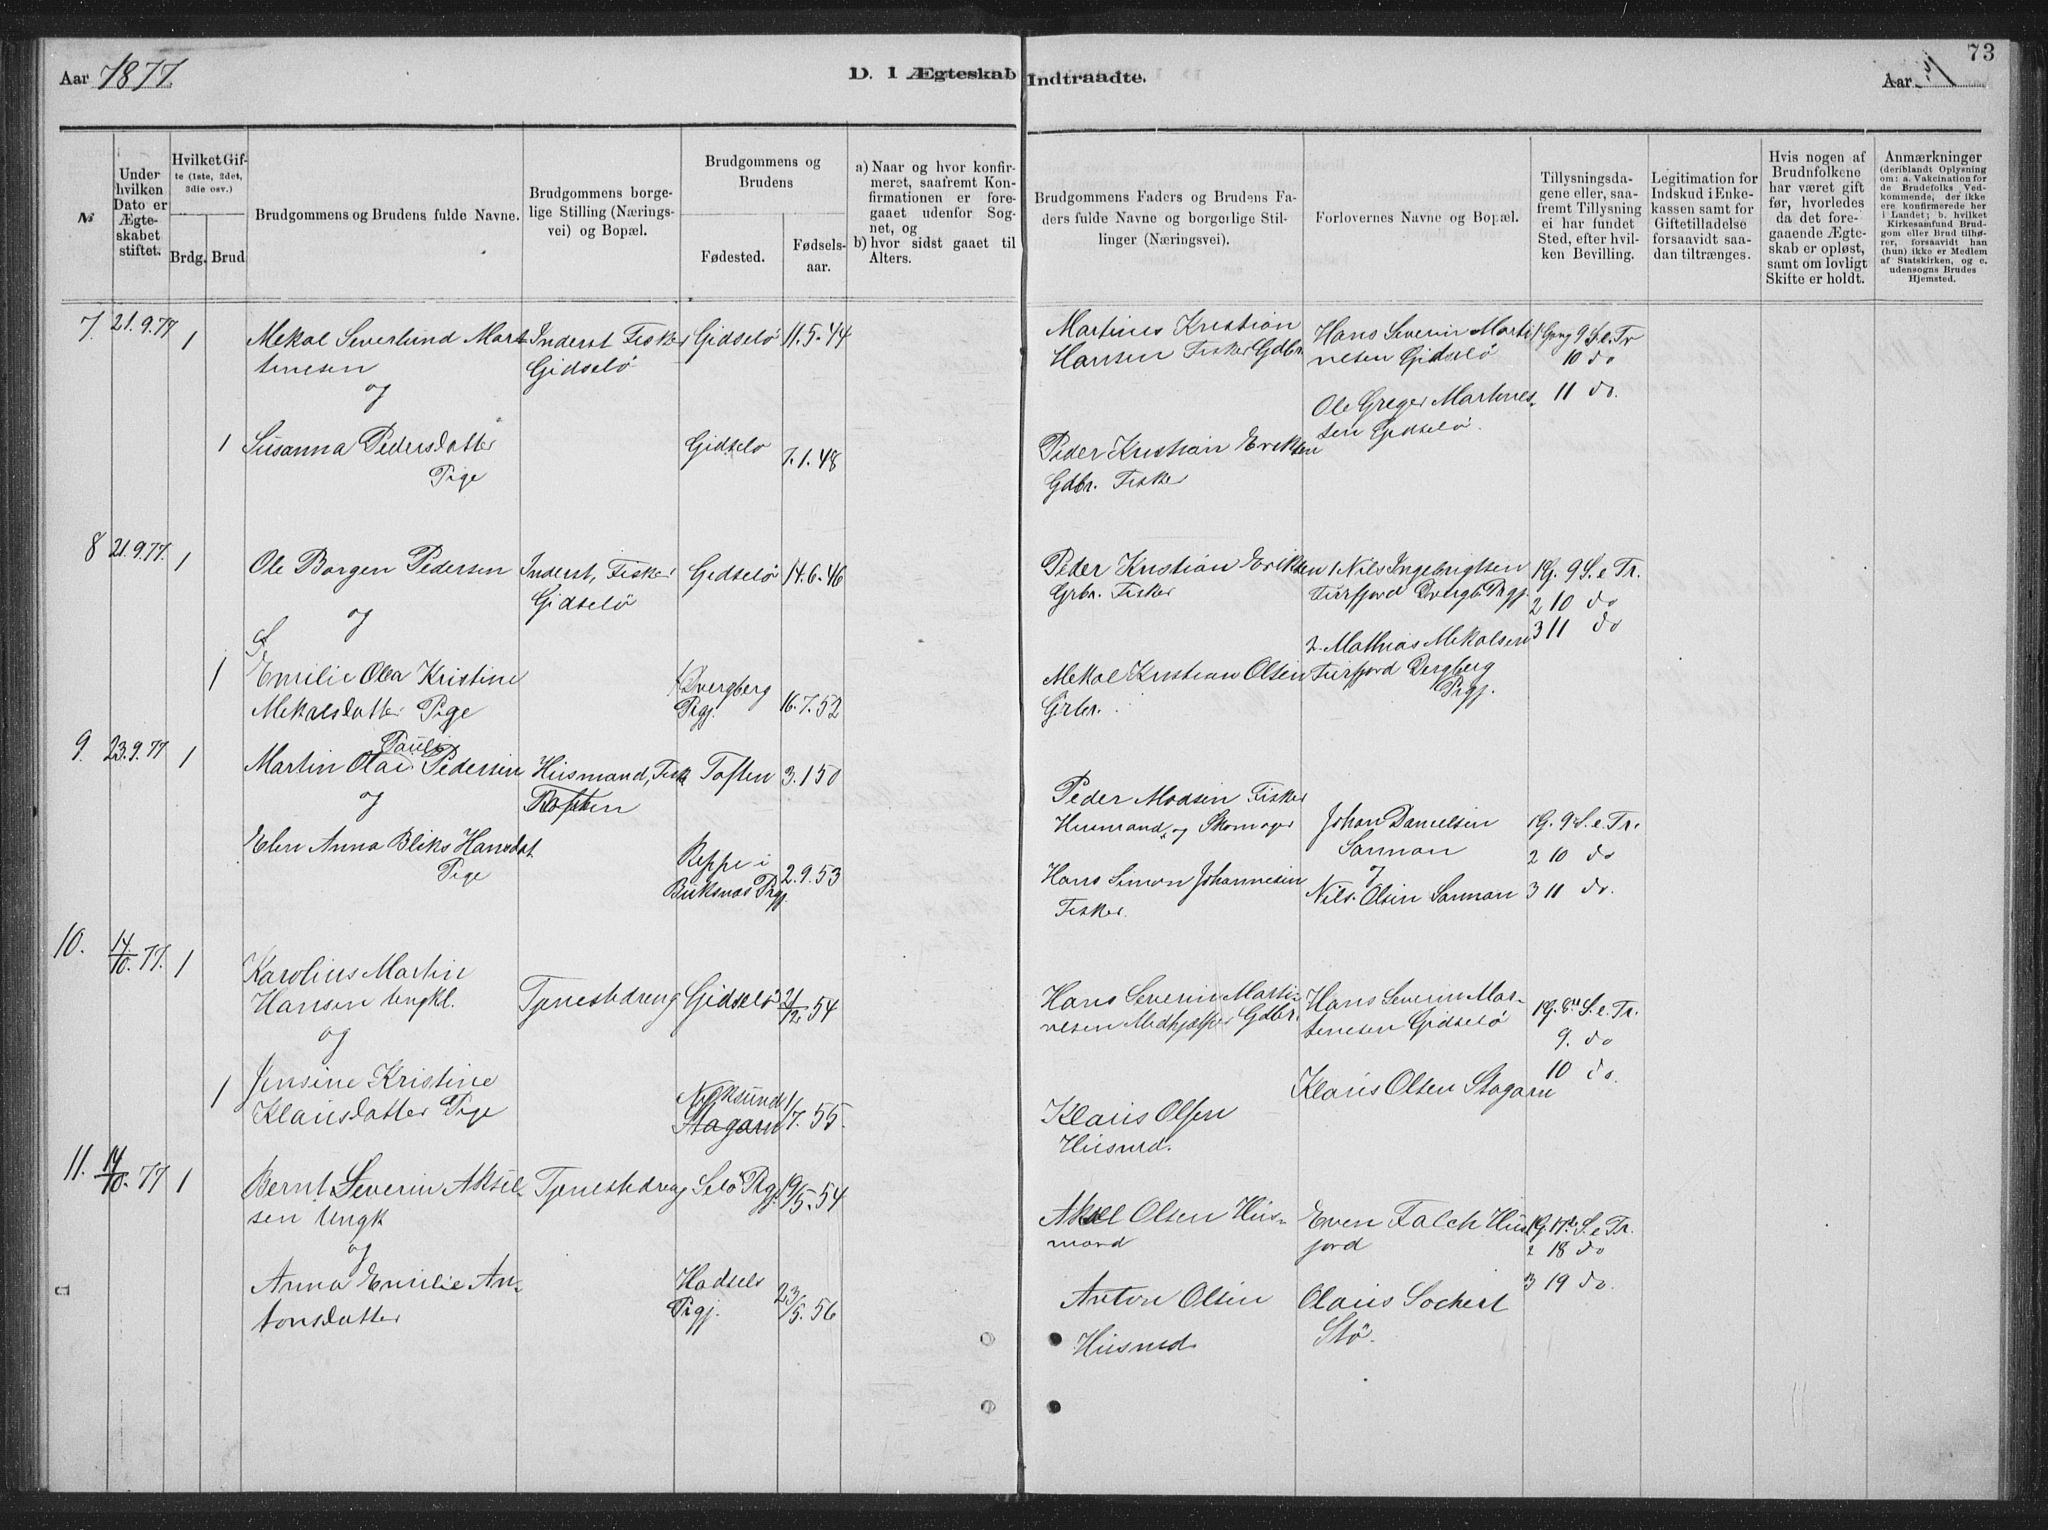 Aar 1877.
D. I Ægteskab Indtraadte.
73
Aar
№
Under hvilken Dato er Ægteskabet stiftet.
Hvilket Gifte (1ste, 2det, 3die osv.)
Brdg.
Brud
Brudgommens og Brudens fulde Navne.
Brudgommens borgelige Stilling (Næringsvei) og Bopæl.
Brudgommens og Brudens
Fødested.
Fødselsaar.
a) Naar og hvor konfirmeret, saafremt Konfirmationen er foregaaet udenfor Sognet, og
b) hvor sidst gaaet til Alters.
Brudgommens Faders og Brudens Faders fulde Navne og borgerlige Stillinger (Næringsvei).
Forlovernes Navne og Bopæl.
Tillysningsdagene eller, saafremt Tillysning ei har fundet Sted, efter hvilken Bevilling.
Legitimation for Indskud i Enkekassen samt for Giftetilladelse forsaavidt saadan tiltrænges.
Hvis nogen af Brudnfolkene har været gift før, hvorledes da det foregaaende Ægteskab er opløst, samt om lovligt Skifte er holdt.
Anmærkninger
(deriblandt Oplysning om: a. Vakcination for de Brudefolks Vedkommende, der ikke ere konfirmerede her i Landet; b. hvilket Kirkesamfund Brudgom eller Brud tilhører, forsaavidt han (hun) ikke er Medlem af Statskirken, og c. udensogns Brudes Hjemsted.
7. 21.9.77 1 Mekal Severlund Mart- Inderst Fisker Gidselö 11.5.44
tinesen Gidselö
og
1 Susanna Pedersdatter Gidselö 7.1.48
Pige
Martines Kristian
Hansen Fisker Gdbr.
Hans Severin Marti
nesen Gidselö
Ole Greger Martines-
sen Gidselö.
1 Gang 9 S. e. Tr
10 do
11 do.
Peder Kristian Eriksen
Gdbr. Fisker
8 21.9.77. 1 Ole Borgen Pedersen Inderst, Fisker Gidselö 14.6.46
Gidselö
og
1 Emilie Olea Kristine Dvergberg 16.7.52
Mekalsdatter Pige Prgj.
Peder Kristian Eriksen
Grbr. Fisker
1 Nils Ingebrigtsen
Fiirfjord Dvergb. Prgj.
2. Mathias Mekalsen
Fiirfjord Dvergberg
Prgj.
1 G. 9 S. e Tr.
2 10 do
3 11 do
Mekal Kristian Olsen
Grbr.
9. 23.9.77 1 Martin Olai Pauli Pedersen Husmand, Fisk Toften 3.1 50
Toften
og
Elen Anna Bliks Hansdat Reppe i 2.9.53
Pige Buksnæs Prgj.
Peder Madsen Fisker
Husmand og Skomager
Johan Danielsen
Sannan
og
Nils Olsen Sannan
1 G. 9 S. e. Tr.
2 10 do
3 11 do.
Hans Simon Johannesen
Fisker.
10. 14/10. 77. 1 Karolius Martin
Hansen Ungkl. Tjenestedreng Gidselö 21/12. 54
og
1 Jensine Kristine Niksund 1/7. 55.
Klausdatter Pige Stagarn
Hans Severin Marti-
nesen Medhjælper Gdbr.
Hans Severin Mar-
tinesen Gidselö
Klaus Olsen Stagarn
1 G. 8de S. e. Tr.
9. do
10 do.
Klaus Olsen
Husmd.
11. 14/10. 77 1 Bernt Severin Aksel- Tjenestedreng Selö Prgj. 19/5. 54
sen Ungk
og
Anna Emilie An- Hadsels 23/5. 56
tonsdatter Prgj.
Aksel Olsen Hus-
mand
Even Falch Hus
fjord
Olaus Sochert
Stö.
1 G. 17de S. e Tr.
2 18 do
3 19 do.
Anton Olsen
Husmd